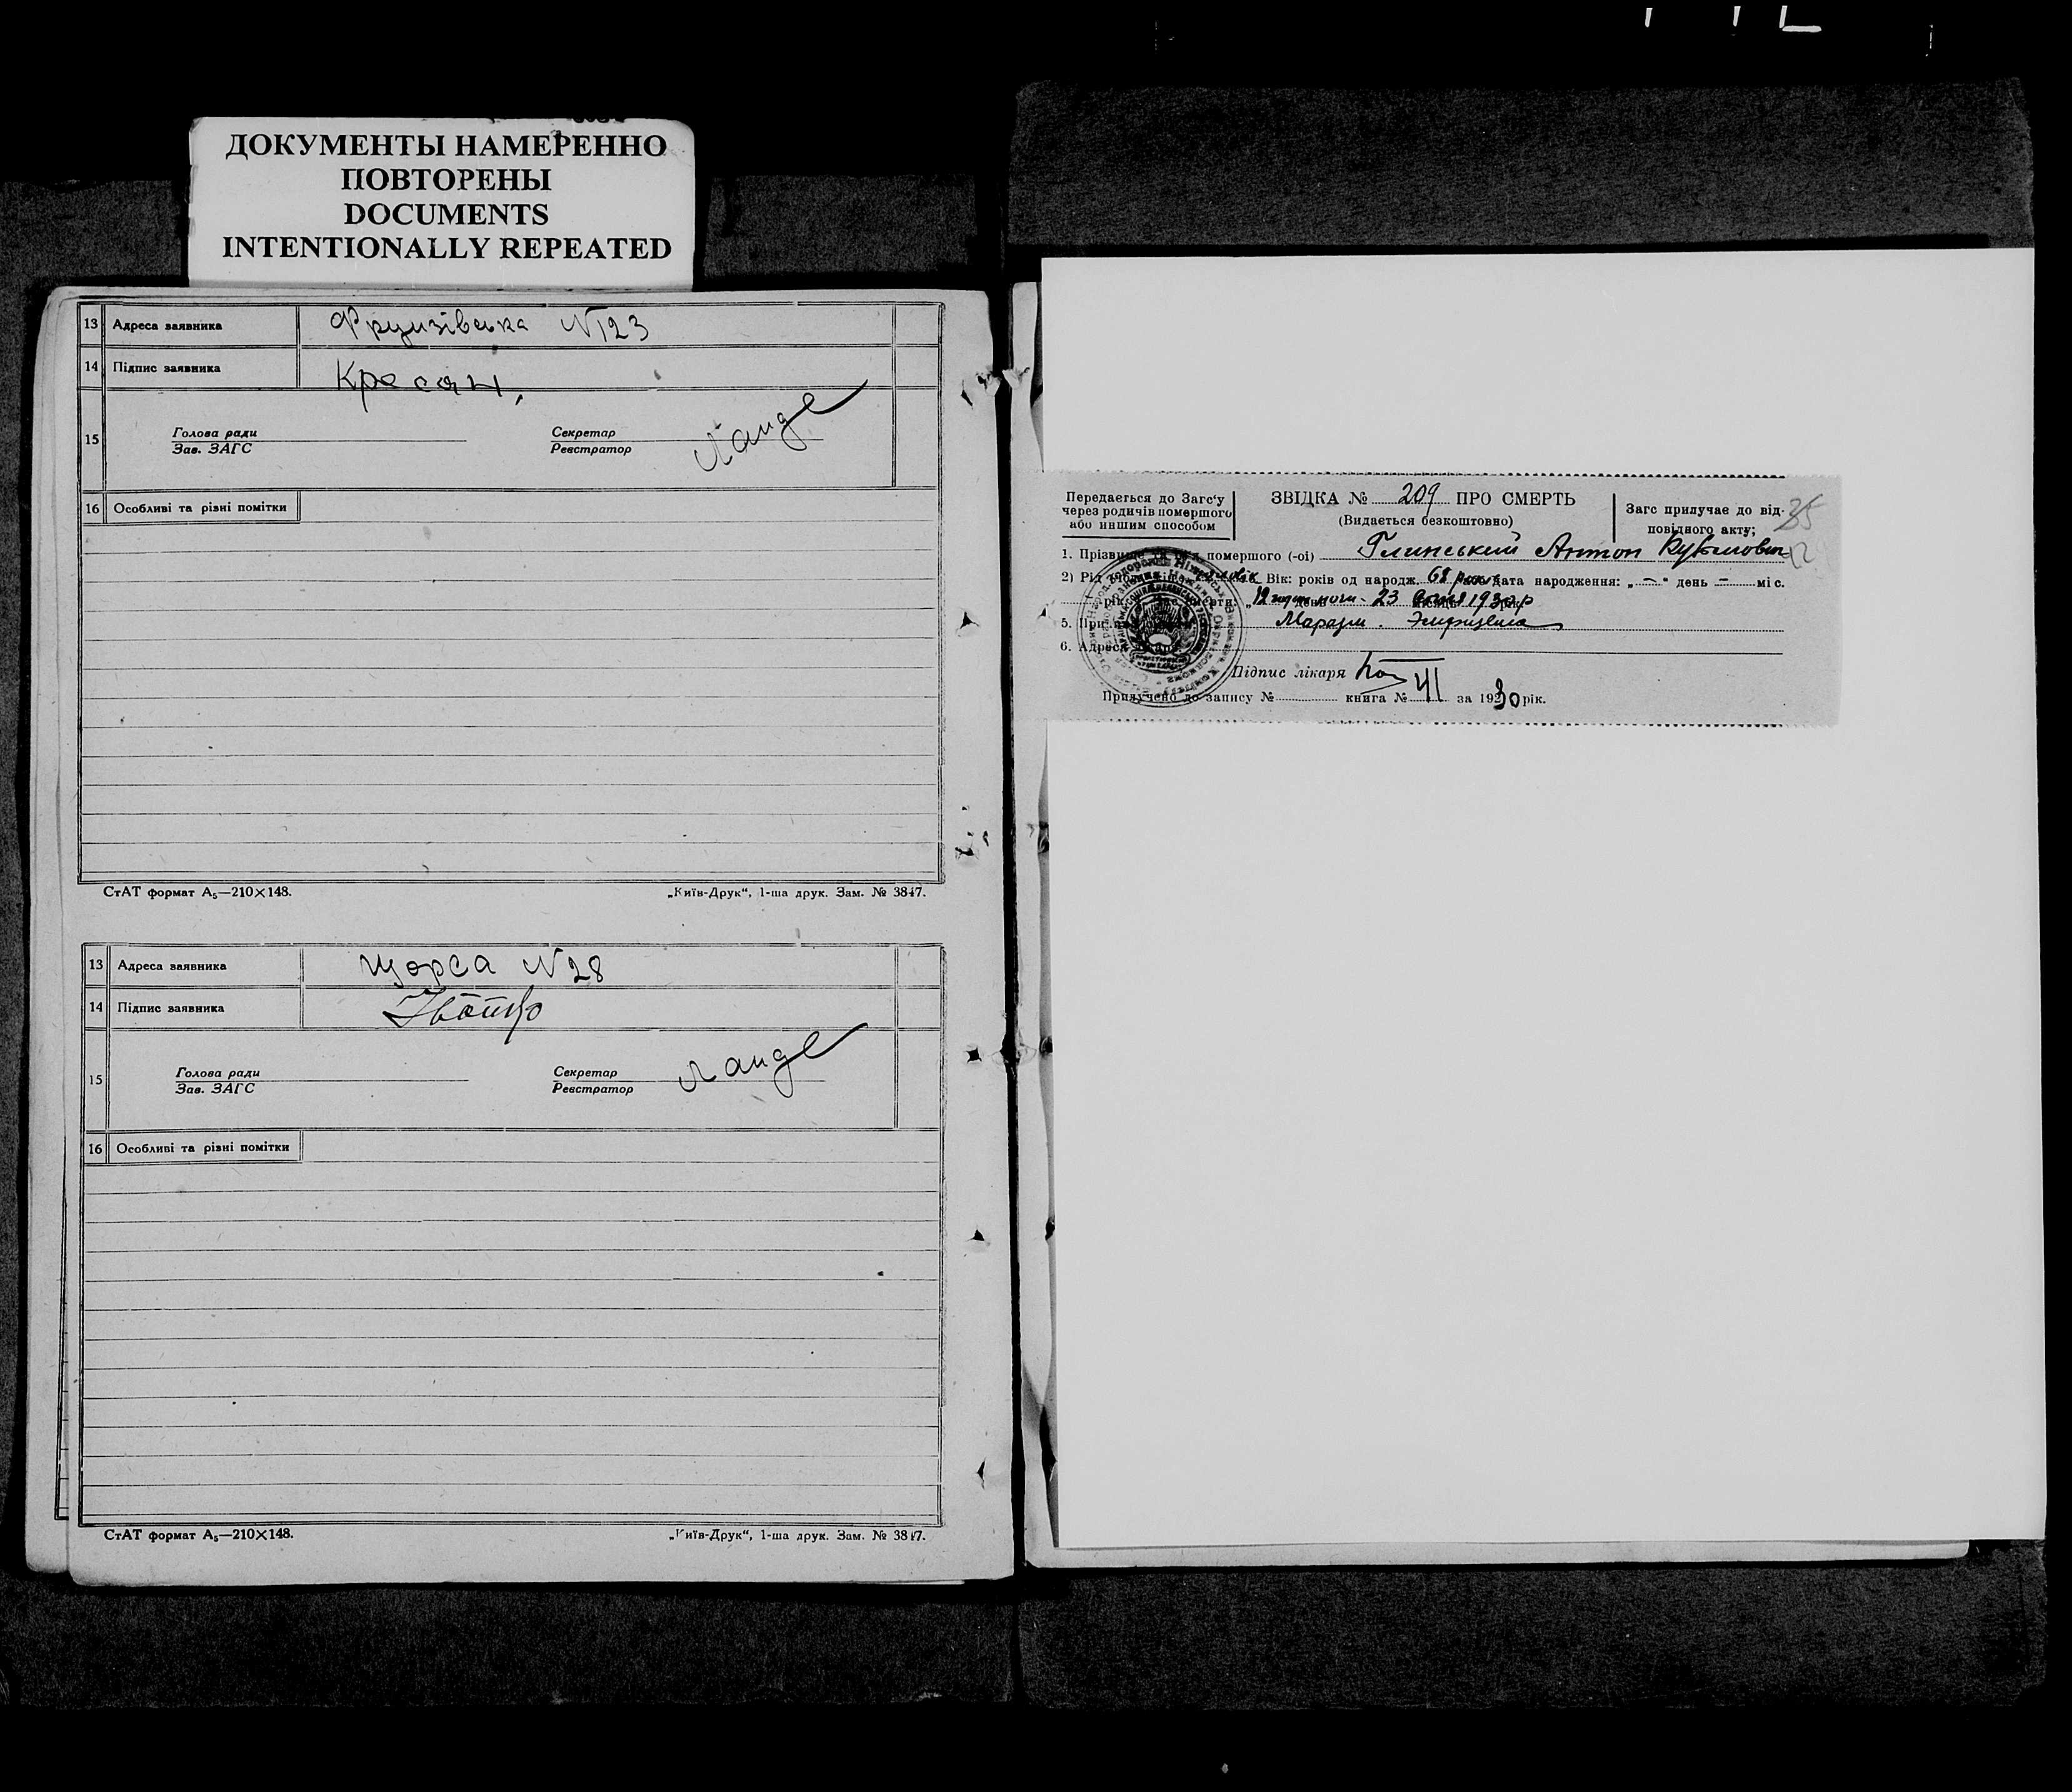 ДОКУМЕНТЫ НАМЕРЕННО
ПОВТОРЕНЫ
DOCUMENTS
INTENTIONALLY REPEATED
13 Адреса заявника Фрунзівська №123
14 Підпис заявника Кресан,
15 Голова ради Секретар Ланде
Зав. ЗАГС Реєстратор
16 Особливі та різні помітки
СтАТ формат А₅—210×148. „Київ-Друк“, 1-ша друк. Зам. № 3847.
13 Адреса заявника Щорса №28
14 Підпис заявника
15 Голова ради Секретар Ланде
Зав. ЗАГС Реєстратор
16 Особливі та різні помітки
СтАТ формат А₅—210×148. „Київ-Друк“, 1-ша друк. Зам. № 3847.
Передається до Загс'у
через родичів помершого
або иншим способом
ЗВІДКА № 209 ПРО СМЕРТЬ
(Видається безкоштовно)
Загс прилучає до від-
повідного акту;
35
12
1. Прізвище та помершого (-ої) Глинський Антон
2) Рід Вік: років од народж. 68 дата народження: „—“ день — міс.
23 1930р
5. Маразм. Эмфизема
6. Адреса
Підпис лікаря
Прилучено до запису № книга № VII за 1930 рік.